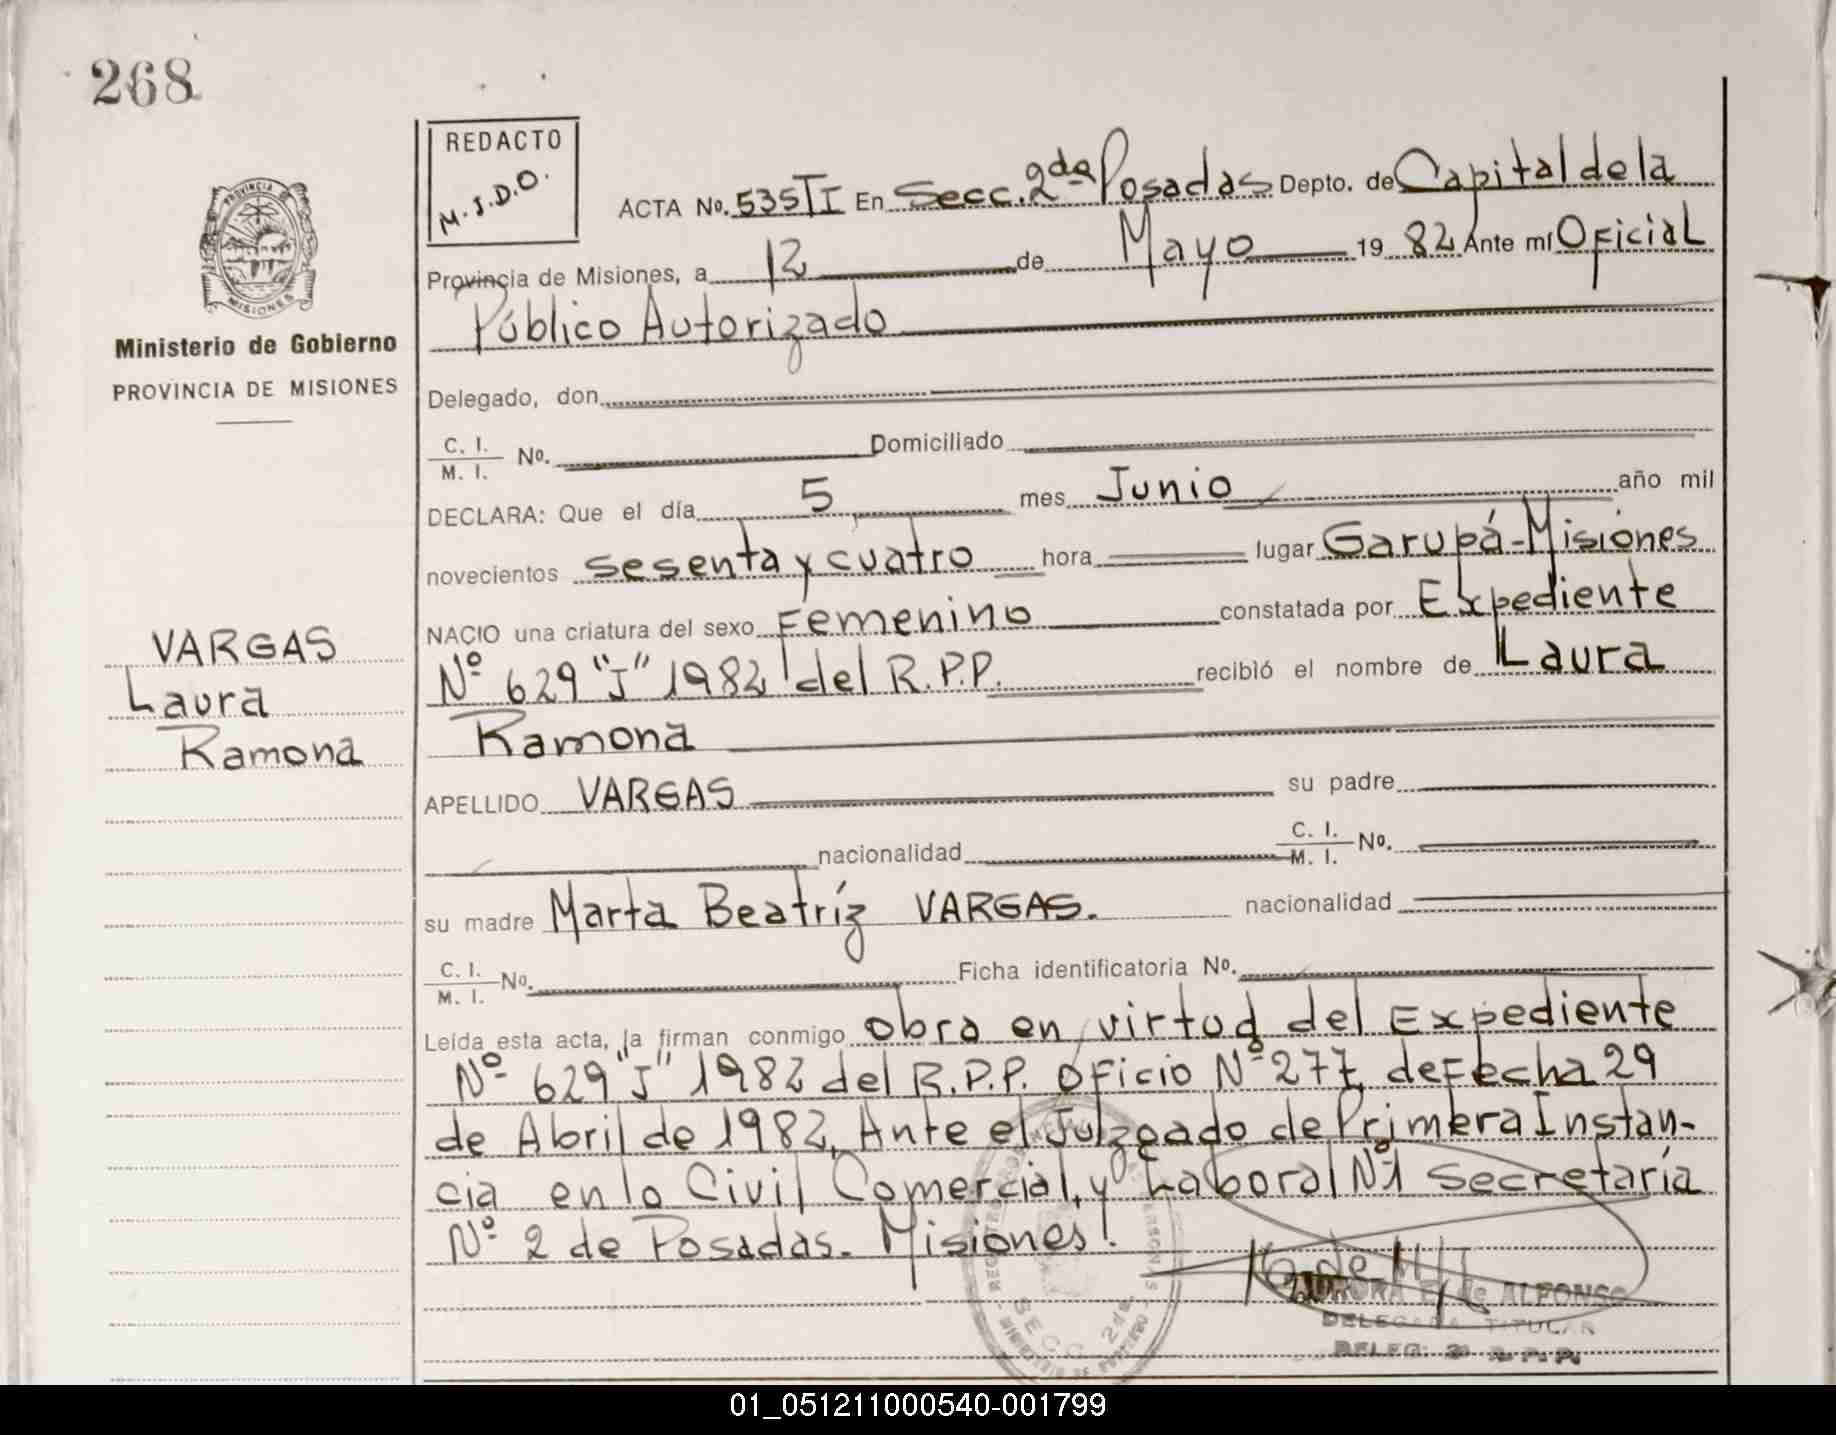 268
REDACTO
M.J.D.O.
ACTA No. 535TI En Secc. 2da Posadas Depto. de Capital de la
Provincia de Misiones, a 12 de Mayo 1982 Ante mí Oficial
Público Autorizado
PROVINCIA
MISIONES
Ministerio de Gobierno
PROVINCIA DE MISIONES
Delegado, don
C. I. No. Domiciliado
M. I.
DECLARA: Que el día 5 mes Junio año mil
novecientos sesenta y cuatro hora lugar Garupá-Misiónes
NACIO una criatura del sexo Femenino constatada por Expediente
Nº 629 "J" 1982 del R.P.P. recibió el nombre de Laura
Ramona
VARGAS
Laura
Ramona
APELLIDO VARGAS su padre
nacionalidad C. I. No.
M. I.
su madre Marta Beatríz VARGAS. nacionalidad
C. I. No. Ficha identificatoria No.
M. I.
Leída esta acta, la firman conmigo obra en virtud del Expediente
Nº 629 "J" 1982 del R.P.P. oficio Nº 277, de Fecha 29
de Abril de 1982, Ante el Julzgado de Primera Instan-
cia en lo Civil Comercial, y Laboral Nº1 Secretaría
Nº 2 de Posadas. Misiones.
de ALFONSO
DELEGADA TITULAR
DELEG. 2ª R. P. P.
SECC. 2da.
01_051211000540-001799